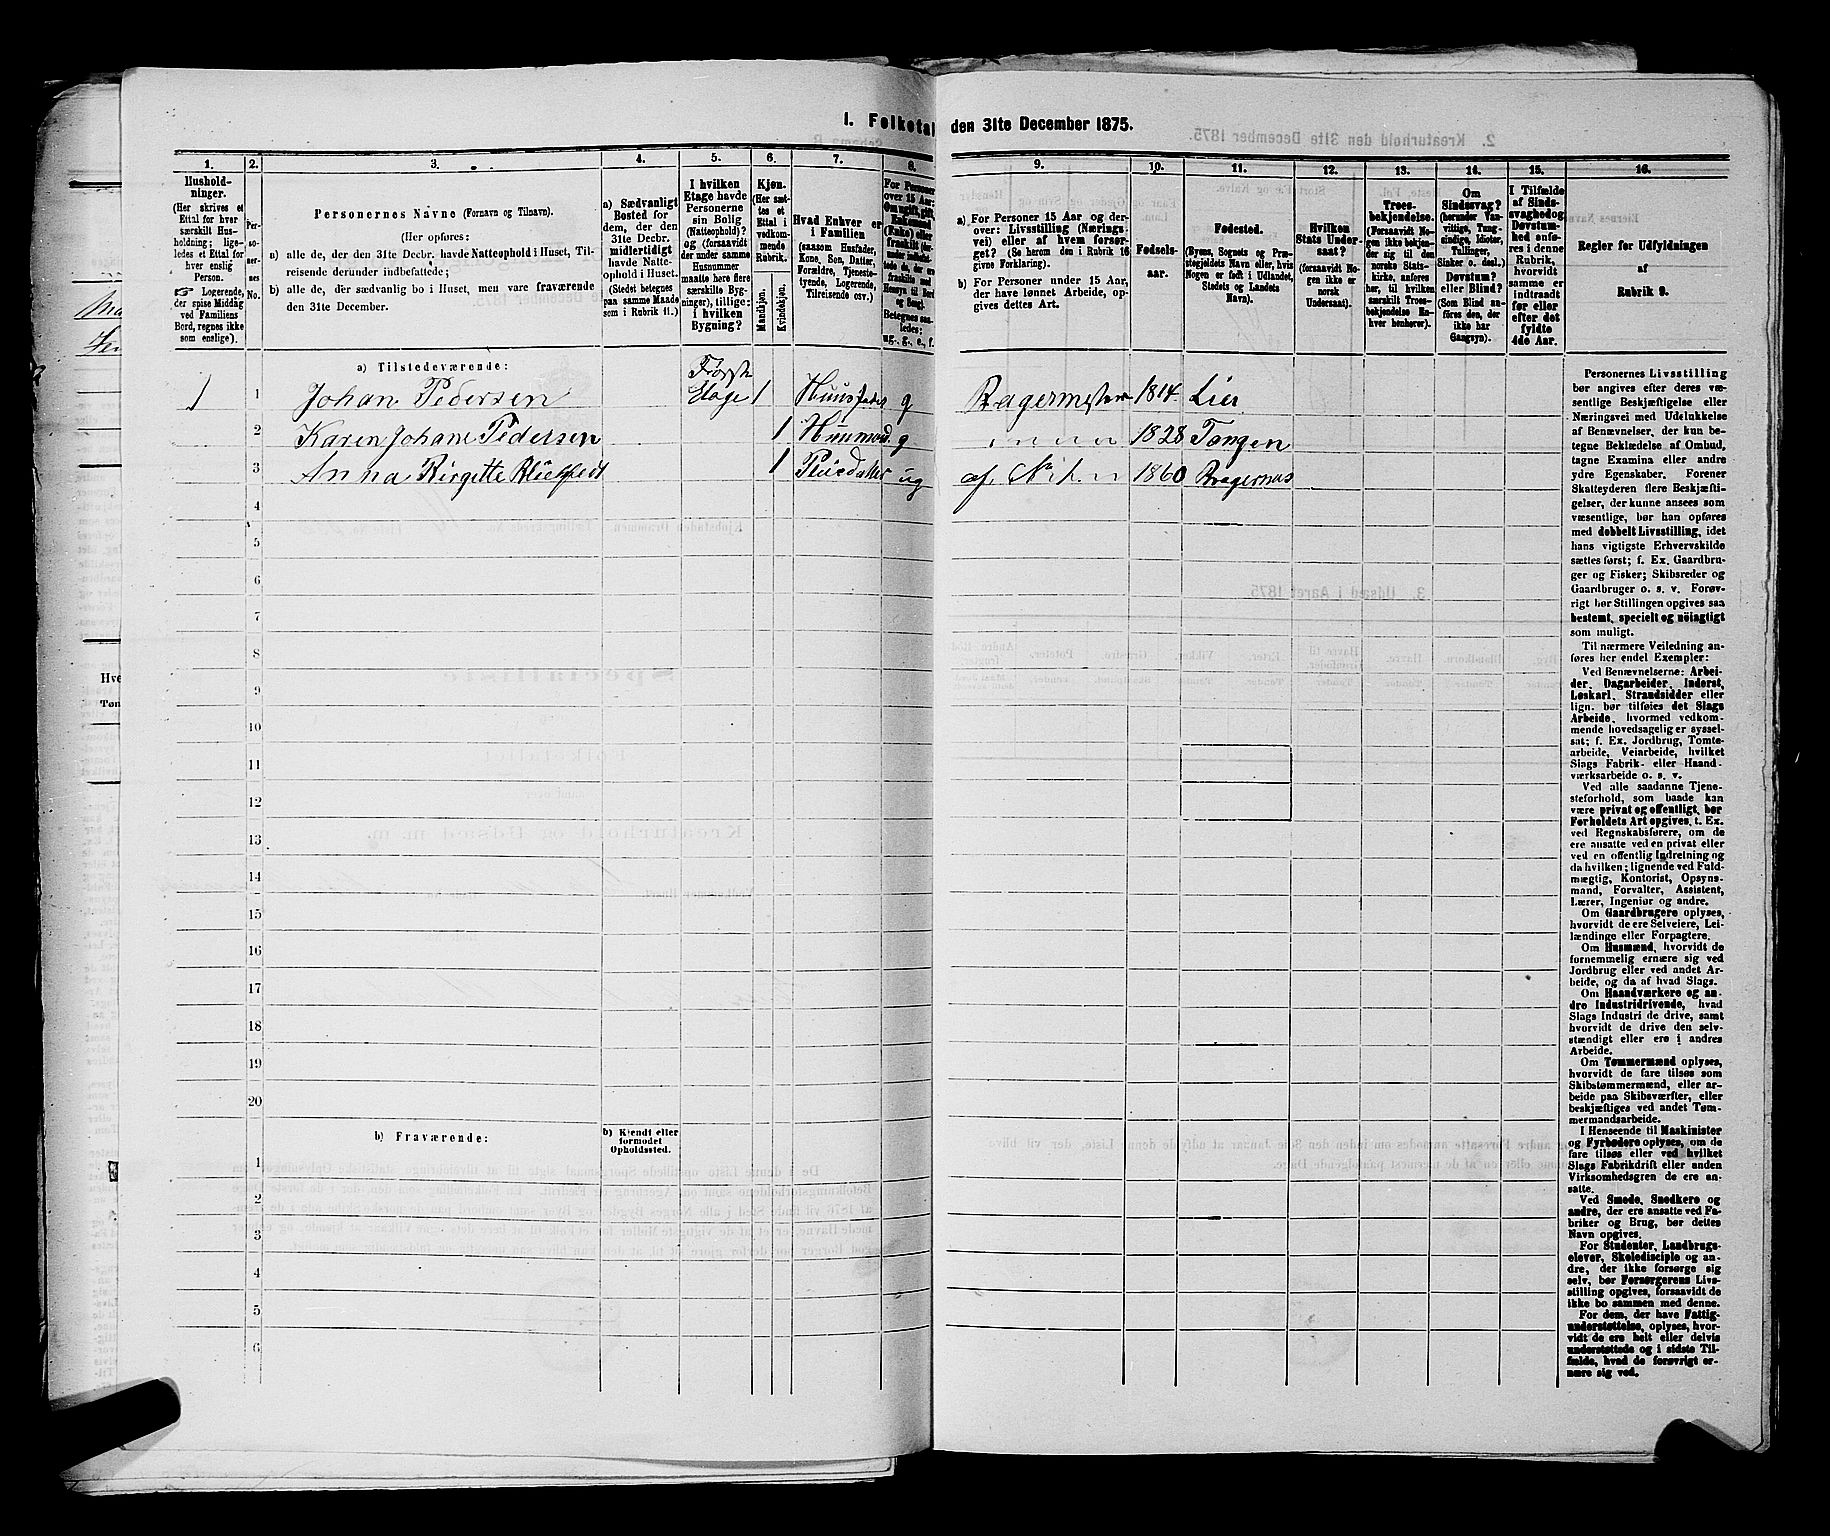 I. Folketal den 31te December 1875.
1. 2. 3. 4. 5. 6. 7. 8. 9. 10. 11. 12. 13. 14. 15. 16.
Husholdninger.
(Her skrives et
Ettal for hver
særskilt Husholdning; ligeledes et Ettal for
hver enslig
Person.
Logerende,
der spise Middag
ved Familiens
Bord, regnes ikke
som enslige).
Personernes No.
Personernes Navne (Fornavn og Tilnavn).
(Her opføres:
a) alle de, der den 31te Decbr. havde Natteophold i Huset, Tilreisende derunder indbefattede;
b) alle de, der sædvanlig bo i Huset, men vare fraværende
den 31te December.
a) Sædvanligt
Bosted for
dem, der den
31te Decbr.
midlertidigt
havde Natteophold i Huset.
(Stedet betegnes
paa samme Maade
som i Rubrik 11.)
I hvilken
Etage havde
Personerne
sin Bolig
(Natteophold)?
og (forsaavidt
der under samme
Husnummer
maatte høre flere
særskilte Bygninger), tillige:
i hvilken
Bygning?
Kjøn.
(Her sættes et
Ettal i
vedkommende
Rubrik.
Mandkjøn.
Kvindekjøn.
Hvad Enhver er
i Familien
(saasom Husfader,
Kone, Søn, Datter,
Forældre, Tjenestetyende, Logerende,
Tilreisende osv.)
For Personer
over 15 Aar:
Om ugift, gift,
Enkemand
(Enke) eller
fraskilt
Betegnes saaledes:
ug., g., e., f.
a) For Personer 15 Aar og derover: Livsstilling (Næringsvei) eller af hvem forsørget? (Se herom den i Rubrik 16
givne Forklaring).
b) For Personer under 15 Aar,
der have lønnet Arbeide, opgives dettes Art.
Fødselsaar.
Fødested.
(Byens, Sognets og Præstegjeldets Navn eller, hvis
Nogen er født i Udlandet,
Stedets og Landets
Navn).
Hvilken
Stats Undersaat?
(forsaavidt Nogen ikke er
norsk
Undersaat).
Troesbekjendelse.
(Forsaavidt Nogen ikke bekjender sig til den
norske Statskirke, anføres
her, til hvilken
særskilt Troesbekjendelse Enhver henhører).
Om
Sindssvag?
(herunder Vanvittige, Tungsindige, Idioter,
Tullinger,
Sinker o. desl.)
Døvstum?
eller Blind?
(Som Blind anføres den, der
ikke har
Gangsyn).
I Tilfælde
af Sindssvaghed og
Døvstumhed anføres i denne
Rubrik,
hvorvidt
samme er
indtraadt
før eller
efter det
fyldte
4de Aar.
Regler for Udfyldningen
af
Rubrik 9.
a) Tilstedeværende:
1 1 Johan Pedersen Første Etage 1 Huusfader g 1814 Lier
2 Karen Johane Pedersen 1 g " " " 1828 Tangen
3 Anna Birgitte 1 ug 1860 Bragernes
4
5
6
7
8
9
10
11
12
13
14
15
16
17
18
19
20
b) Fraværende:
b) Kjendt eller
formodet
Opholdssted.
1
2
3
4
5
6
Personernes Livsstilling
bør angives efter deres væsentlige Beskjæftigelse eller
Næringsvei med Udelukkelse
af Benævnelser, der kun betegne Beklædelse af Ombud,
tagne Examina eller andre
ydre Egenskaber. Forener
Skatteyderen flere Beskjæftigelser, der kunne ansees som
væsentlige, bør han opføres
med dobbelt Livsstilling, idet
hans vigtigste Erhvervskilde
sættes først; f. Ex. Gaardbruger og Fisker; Skibsreder og
Gaardbruger o. s. v. Forøvrigt bør Stillingen opgives saa
bestemt, specielt og nöiagtigt
som muligt.
Til nærmere Veiledning anføres her endel Exempler:
Ved Benævnelserne: Arbeider, Dagarbeider, Inderst,
Løskarl, Strandsidder eller
lign. bør tilføies det Slags
Arbeide, hvormed vedkommende hovedsagelig er sysselsat; f. Ex. Jordbrug, Tomtearbeide, Veiarbeide, hvilket
Slags Fabrik- eller Haandværksarbeide o. s. v.
Ved alle saadanne Tjenesteforhold, som baade kan
være privat og offentligt, bør
Forholdets Art opgives, f. Ex.
ved Regnskabsførere, om de
ere ansatte ved en privat eller
ved en offentlig Indretning og
da hvilken; lignende ved Fuldmægtig, Kontorist, Opsynsmand, Forvalter, Assistent,
Lærer, Ingeniør og andre.
Om Gaardbrugere oplyses,
hvorvidt de ere Selveiere, Leilændinge eller Forpagtere.
Om Husmænd, hvorvidt de
fornemmelig ernære sig ved
Jordbrug eller ved andet Arbeide, og da af hvad Slags.
Om Haandværkere og andre Industridrivende, hvad
Slags Industri de drive, samt
hvorvidt de drive den selvstændigt eller ere i andres
Arbeide.
Om Tømmermænd oplyses,
hvorvidt de fare tilsøs som
Skibstømmermænd, eller arbeide paa Skibsværfter, eller
beskjæftiges ved andet Tømmermandsarbeide.
I Henseende til Maskinister
og Fyrbødere oplyses, om de
fare tilsøs eller ved hvilket
Slags Fabrikdrift eller anden
Virksomhedsgren de ere ansatte.
Ved Smede, Snedkere og
andre, der ere ansatte ved Fabriker og Brug, bør dettes
Navn opgives.
For Studenter, Landbrugselever, Skoledisciple og andre, der ikke forsørge sig
selv, bør Forsørgerens Livsstilling opgives, forsaavidt de
ikke bo sammen med denne.
For dem, der have Fattigunderstøttelse, oplyses, hvorvidt de ere helt eller delvis
understøttede og i sidste Tilfælde, hvad de forøvrigt ernære sig ved.